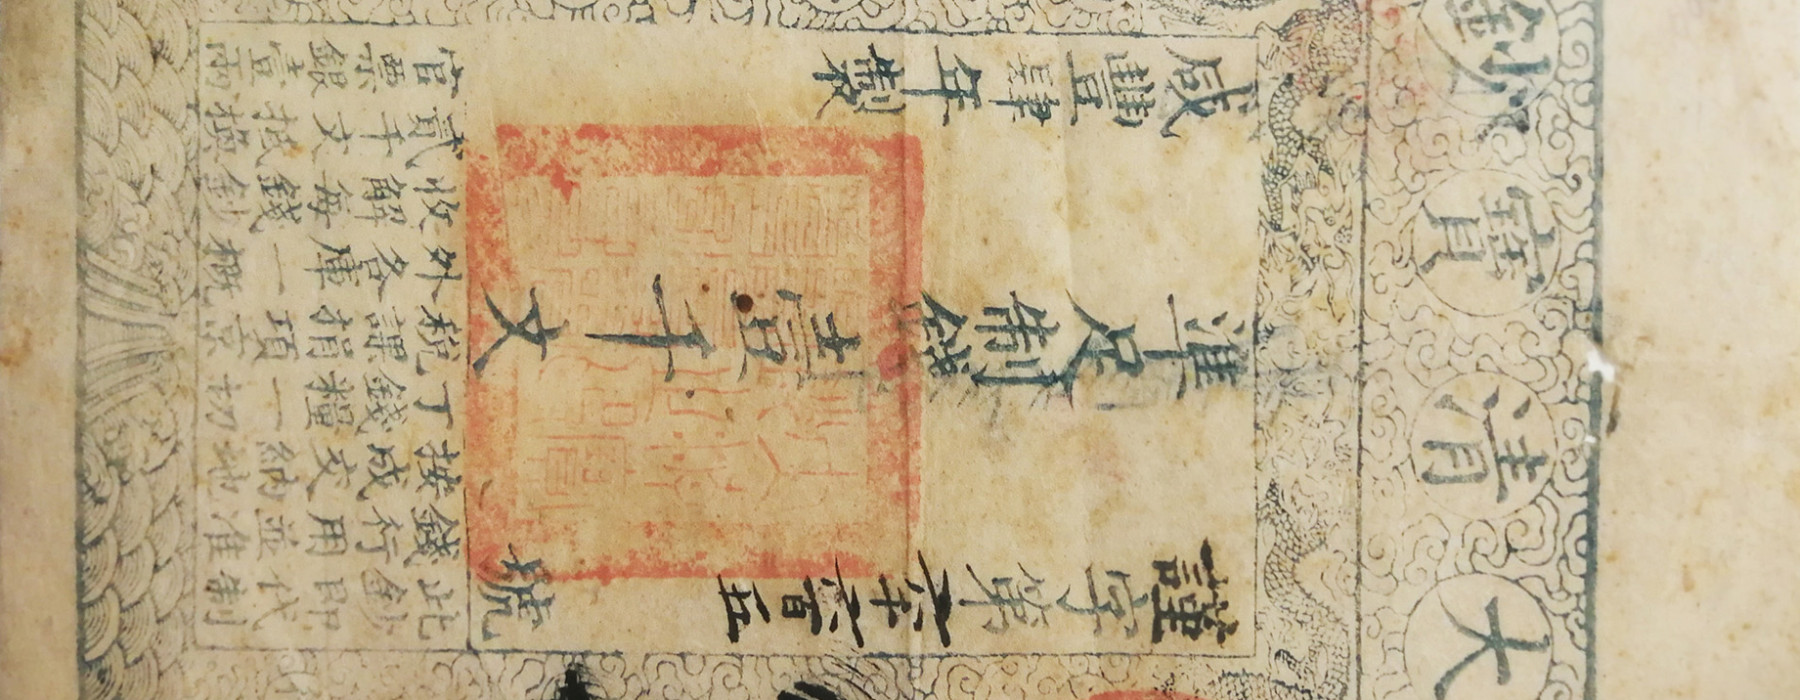 大清寶鈔
謹字第六千六百五號
準足制錢壹千文
咸豐肆年製
此鈔即代制
錢行用並准
按成交納地
丁錢糧一切
稅課捐項京
外各庫一概
收解每錢鈔
貳千文抵換
官票銀壹兩